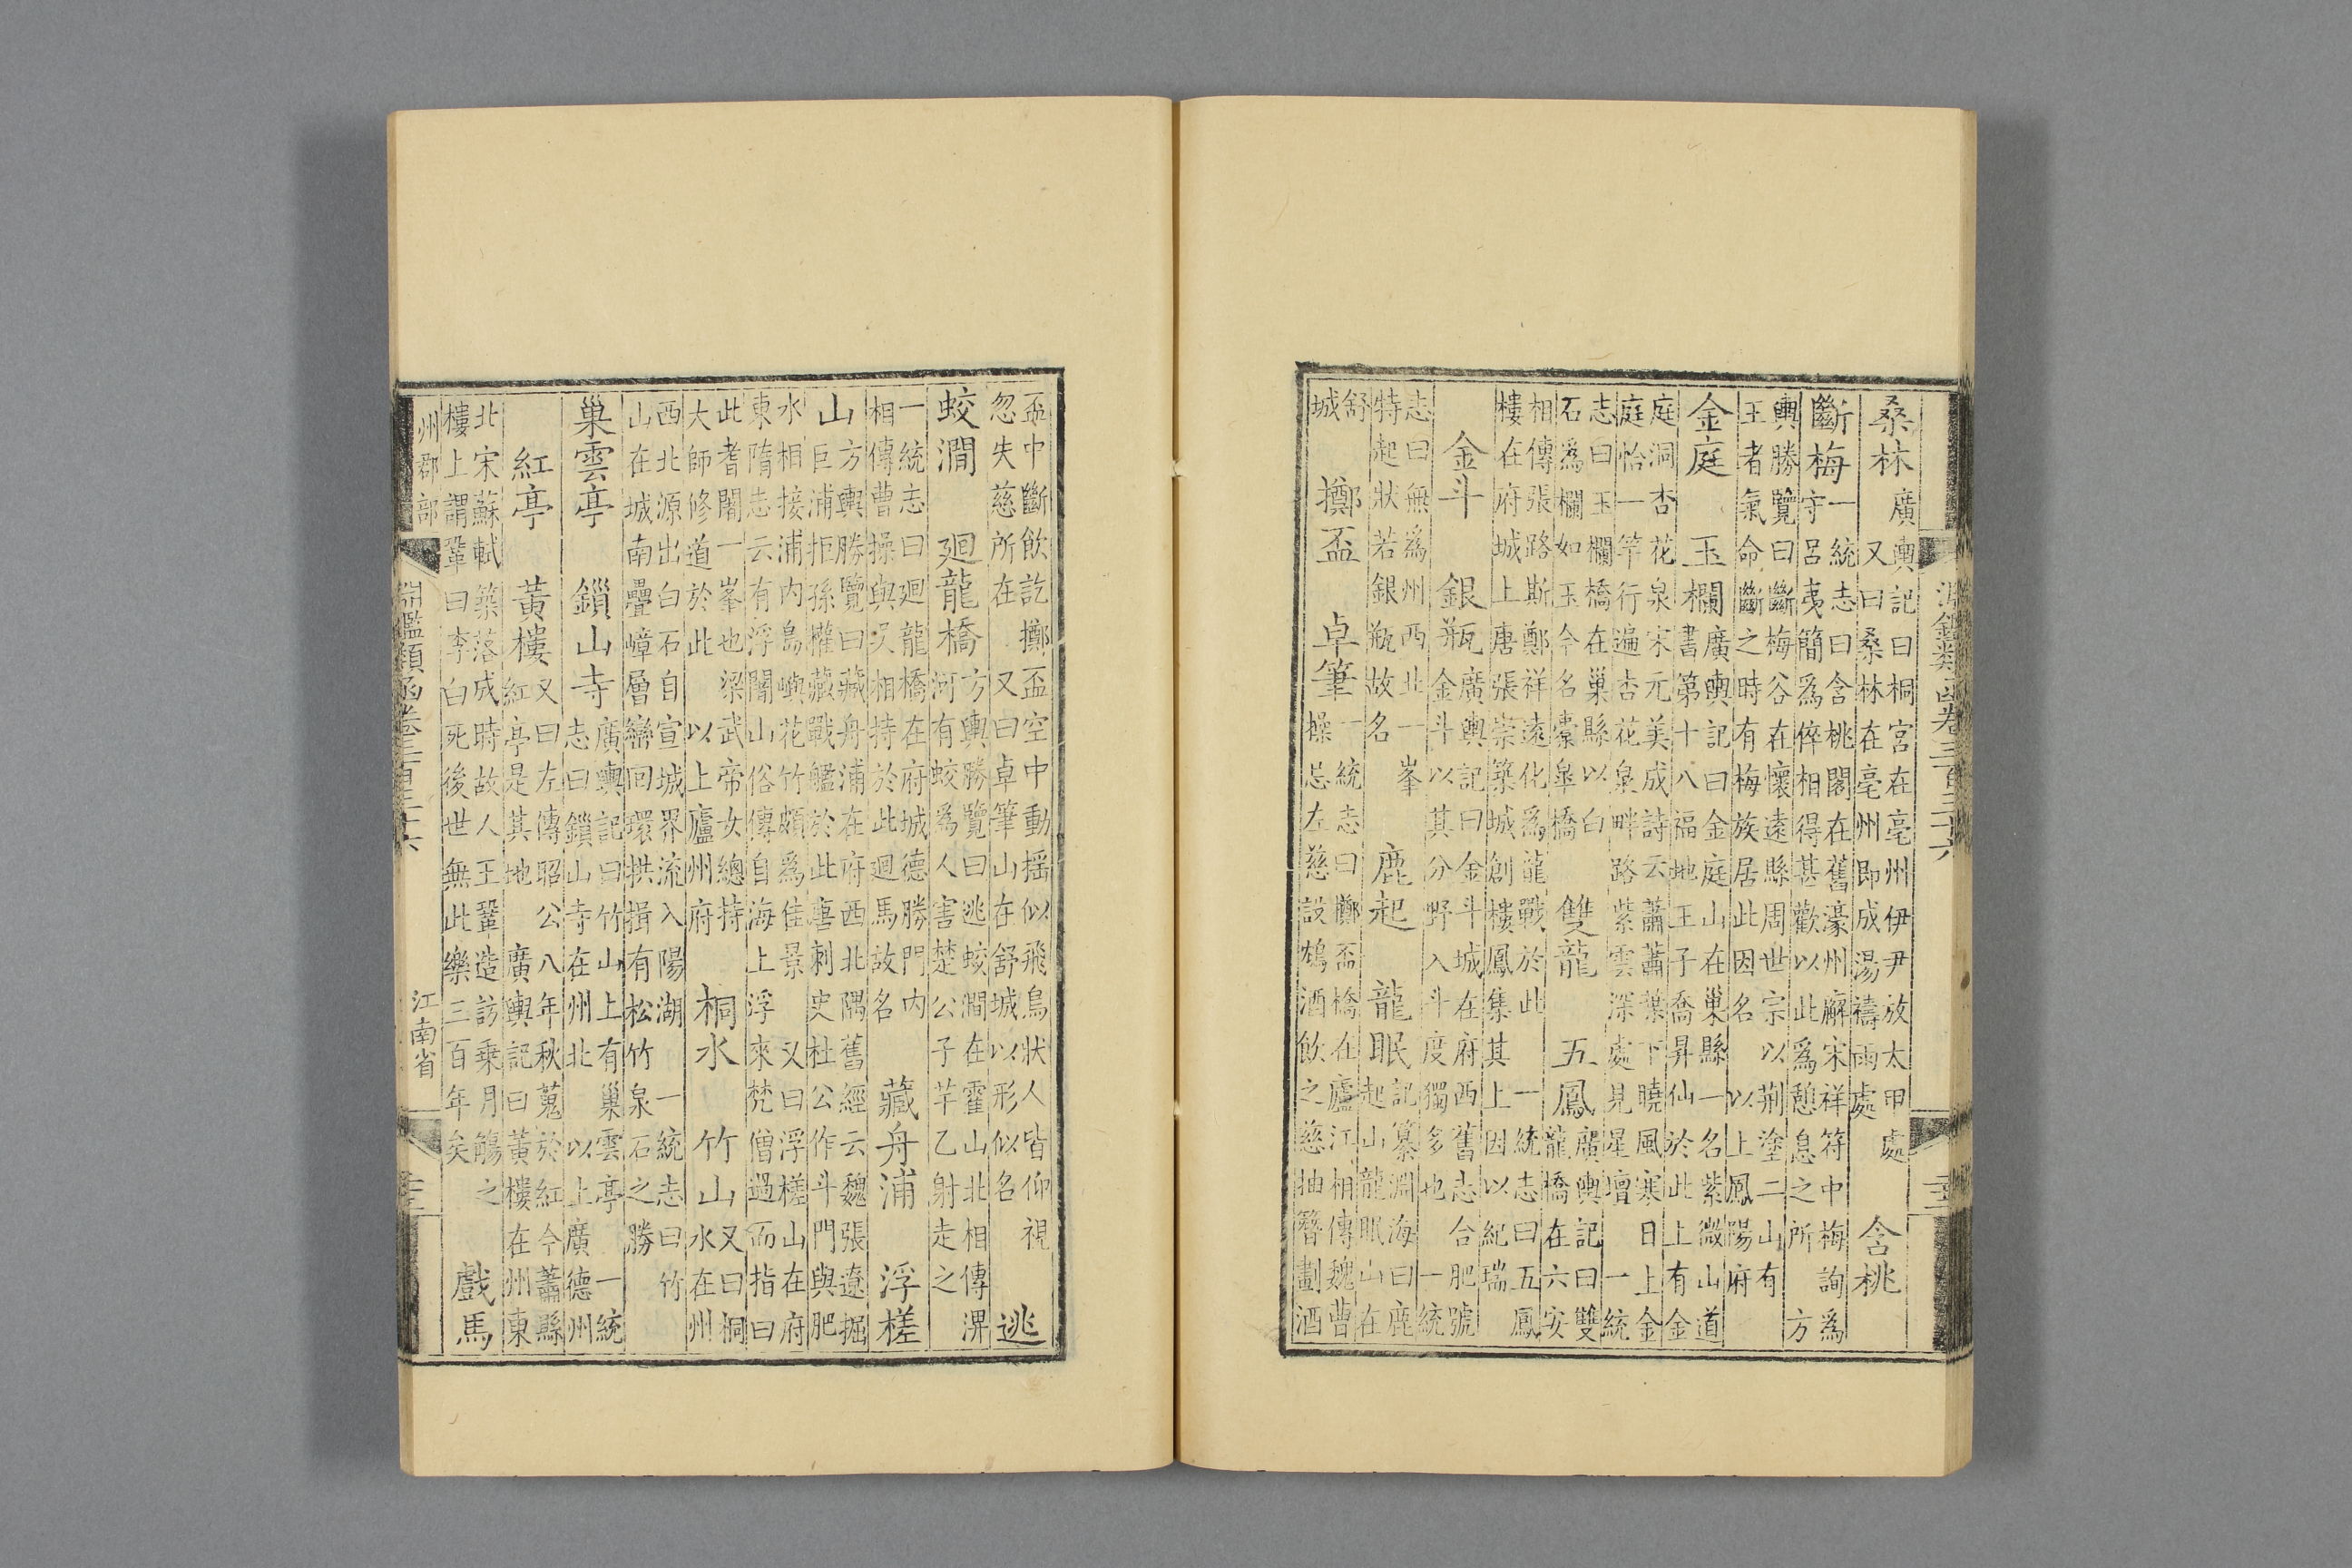 淵鑑類函卷三百三十六
桑林
廣輿記曰桐宮在亳州伊尹放太甲處
又曰桑林在亳州即成湯禱雨處
含桃
斷梅
一統志曰含桃閣在舊濠州廨宋祥符中梅詢為
守呂夷簡為倅相得甚歡以此為憩息之所 方
輿勝覽曰斷梅谷在懷遠縣周世宗以荆塗二山有
王者氣命斷之時有梅族居此因名 以上鳳陽府
金庭 玉欄
廣輿記曰金庭山在巢縣一名紫微山道
書第十八福地王子喬昇仙於此上有金
庭洞杏花泉宋元美成詩云蕭蕭葉下曉風寒日上金
庭恰一竿行遍杏花泉畔路紫雲深處見星壇 一統
志曰玉欄橋在巢縣以白
石為欄如玉今名橐皐橋
雙龍 五鳳
廣輿記曰雙
龍橋在六安
相傳張路斯鄭祥遠化為龍戰於此 一統志曰五鳳
樓在府城上唐張崇築城創樓鳳集其上因以紀瑞
金斗 銀瓶
廣輿記曰金斗城在府西舊志合肥號
金斗以其分野入斗度獨多也 一統
志曰無為州西北一峯
特起狀若銀瓶故名
鹿起 龍眠
記纂淵海曰鹿
起山龍眠山在
舒
城
擲盃 卓筆
一統志曰擲盃橋在廬江相傳魏曹
操忌左慈設鴆酒飲之慈抽簪劃酒
盃中斷飲訖擲盃空中動揺似飛鳥狀人皆仰視
忽失慈所在 又曰卓筆山在舒城以形似名
逃
蛟澗 廻龍橋
方輿勝覽曰逃蛟澗在霍山北相傳淠
河有蛟為人害楚公子芊乙射走之
一統志曰廻龍橋在府城德勝門内
相傳曹操與吳相持於此廻馬故名
藏舟浦 浮槎
山
方輿勝覽曰藏舟浦在府西北隅舊經云魏張遼掘
巨浦拒孫權藏戰艦於此唐刺史杜公作斗門與肥
水相接浦内島嶼花竹頗為佳景 又曰浮槎山在府
東隋志云有浮闍山俗傳自海上浮來梵僧過而指曰
此耆闍一峯也梁武帝女總持
大師修道於此 以上廬州府
桐水 竹山
又曰桐
水在州
西北源出白石自宣城界流入陽湖 一統志曰竹
山在城南疊嶂層巒回環拱揖有松竹泉石之勝
巢雲亭 鎖山寺
廣輿記曰竹山上有巢雲亭 一統
志曰鎖山寺在州北 以上廣德州
紅亭 黃樓
又曰左傳昭公八年秋蒐於紅今蕭縣
紅亭是其地 廣輿記曰黃樓在州東
北宋蘇軾築落成時故人王鞏造訪乗月觴之
樓上謂鞏曰李白死後世無此樂三百年矣
戲馬
州郡部
淵鑑類函卷三百三十六
江南省